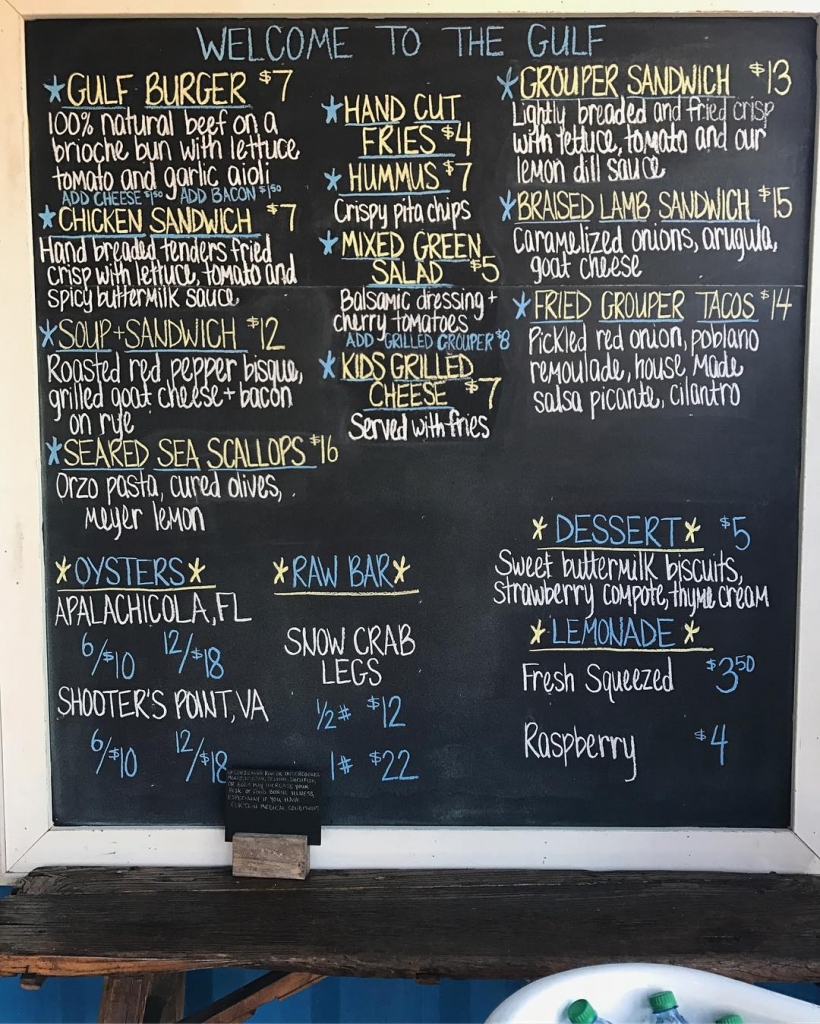 WELCOME TO THE GULF
*GULF BURGER $7
100% natural beef on a
brioche bun with lettuce
tomato and garlic aioli
ADD CHEESE $1.50 ADD BACON $1.50
*CHICKEN SANDWICH $7
Hand breaded tenders fried
crisp with lettuce, tomato and
spicy buttermilk sauce
*SOUP+SANDWICH $12
Roasted red pepper bisque,
grilled goat cheese + bacon
on rye
*SEARED SEA SCALLOPS $16
Orzo pasta, cured olives,
Meyer lemon
*HAND CUT
FRIES $4
*HUMMUS $7
Crispy pita chips
*MIXED GREEN
SALAD $5
Balsamic dressing +
cherry tomatoes
ADD GRILLED GROUPER $8
*KIDS GRILLED
CHEESE $7
Served with fries
*GROUPER SANDWICH $13
Lightly breaded and fried crisp
with lettuce, tomato and our
lemon dill sauce
*BRAISED LAMB SANDWICH $15
Caramelized onions, arugula,
goat cheese
*FRIED GROUPER TACOS $14
Pickled red onion, poblano
remoulade, house made
salsa picante, cilantro
*OYSTERS*
APALACHICOLA, FL
6/$10 12/$18
SHOOTER'S POINT, VA
6/$10 12/$18
*RAW BAR*
SNOW CRAB
LEGS
1/2# $12
1# $22
*DESSERT* $5
Sweet buttermilk biscuits,
strawberry compote, thyme cream
*LEMONADE*
Fresh Squeezed $3.50
Raspberry $4